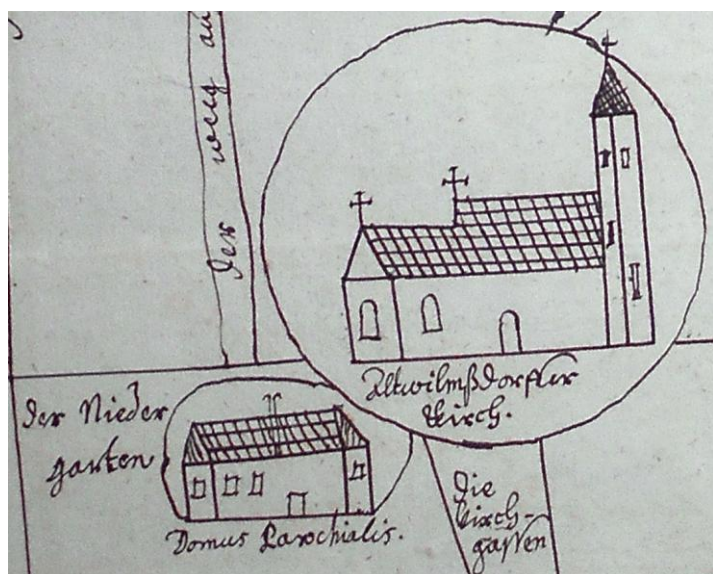 der weeg au
Altwilmßdorffer
Kirch.
der Nieder
garten
Domus Parochialis.
die
Kirch-
gassen